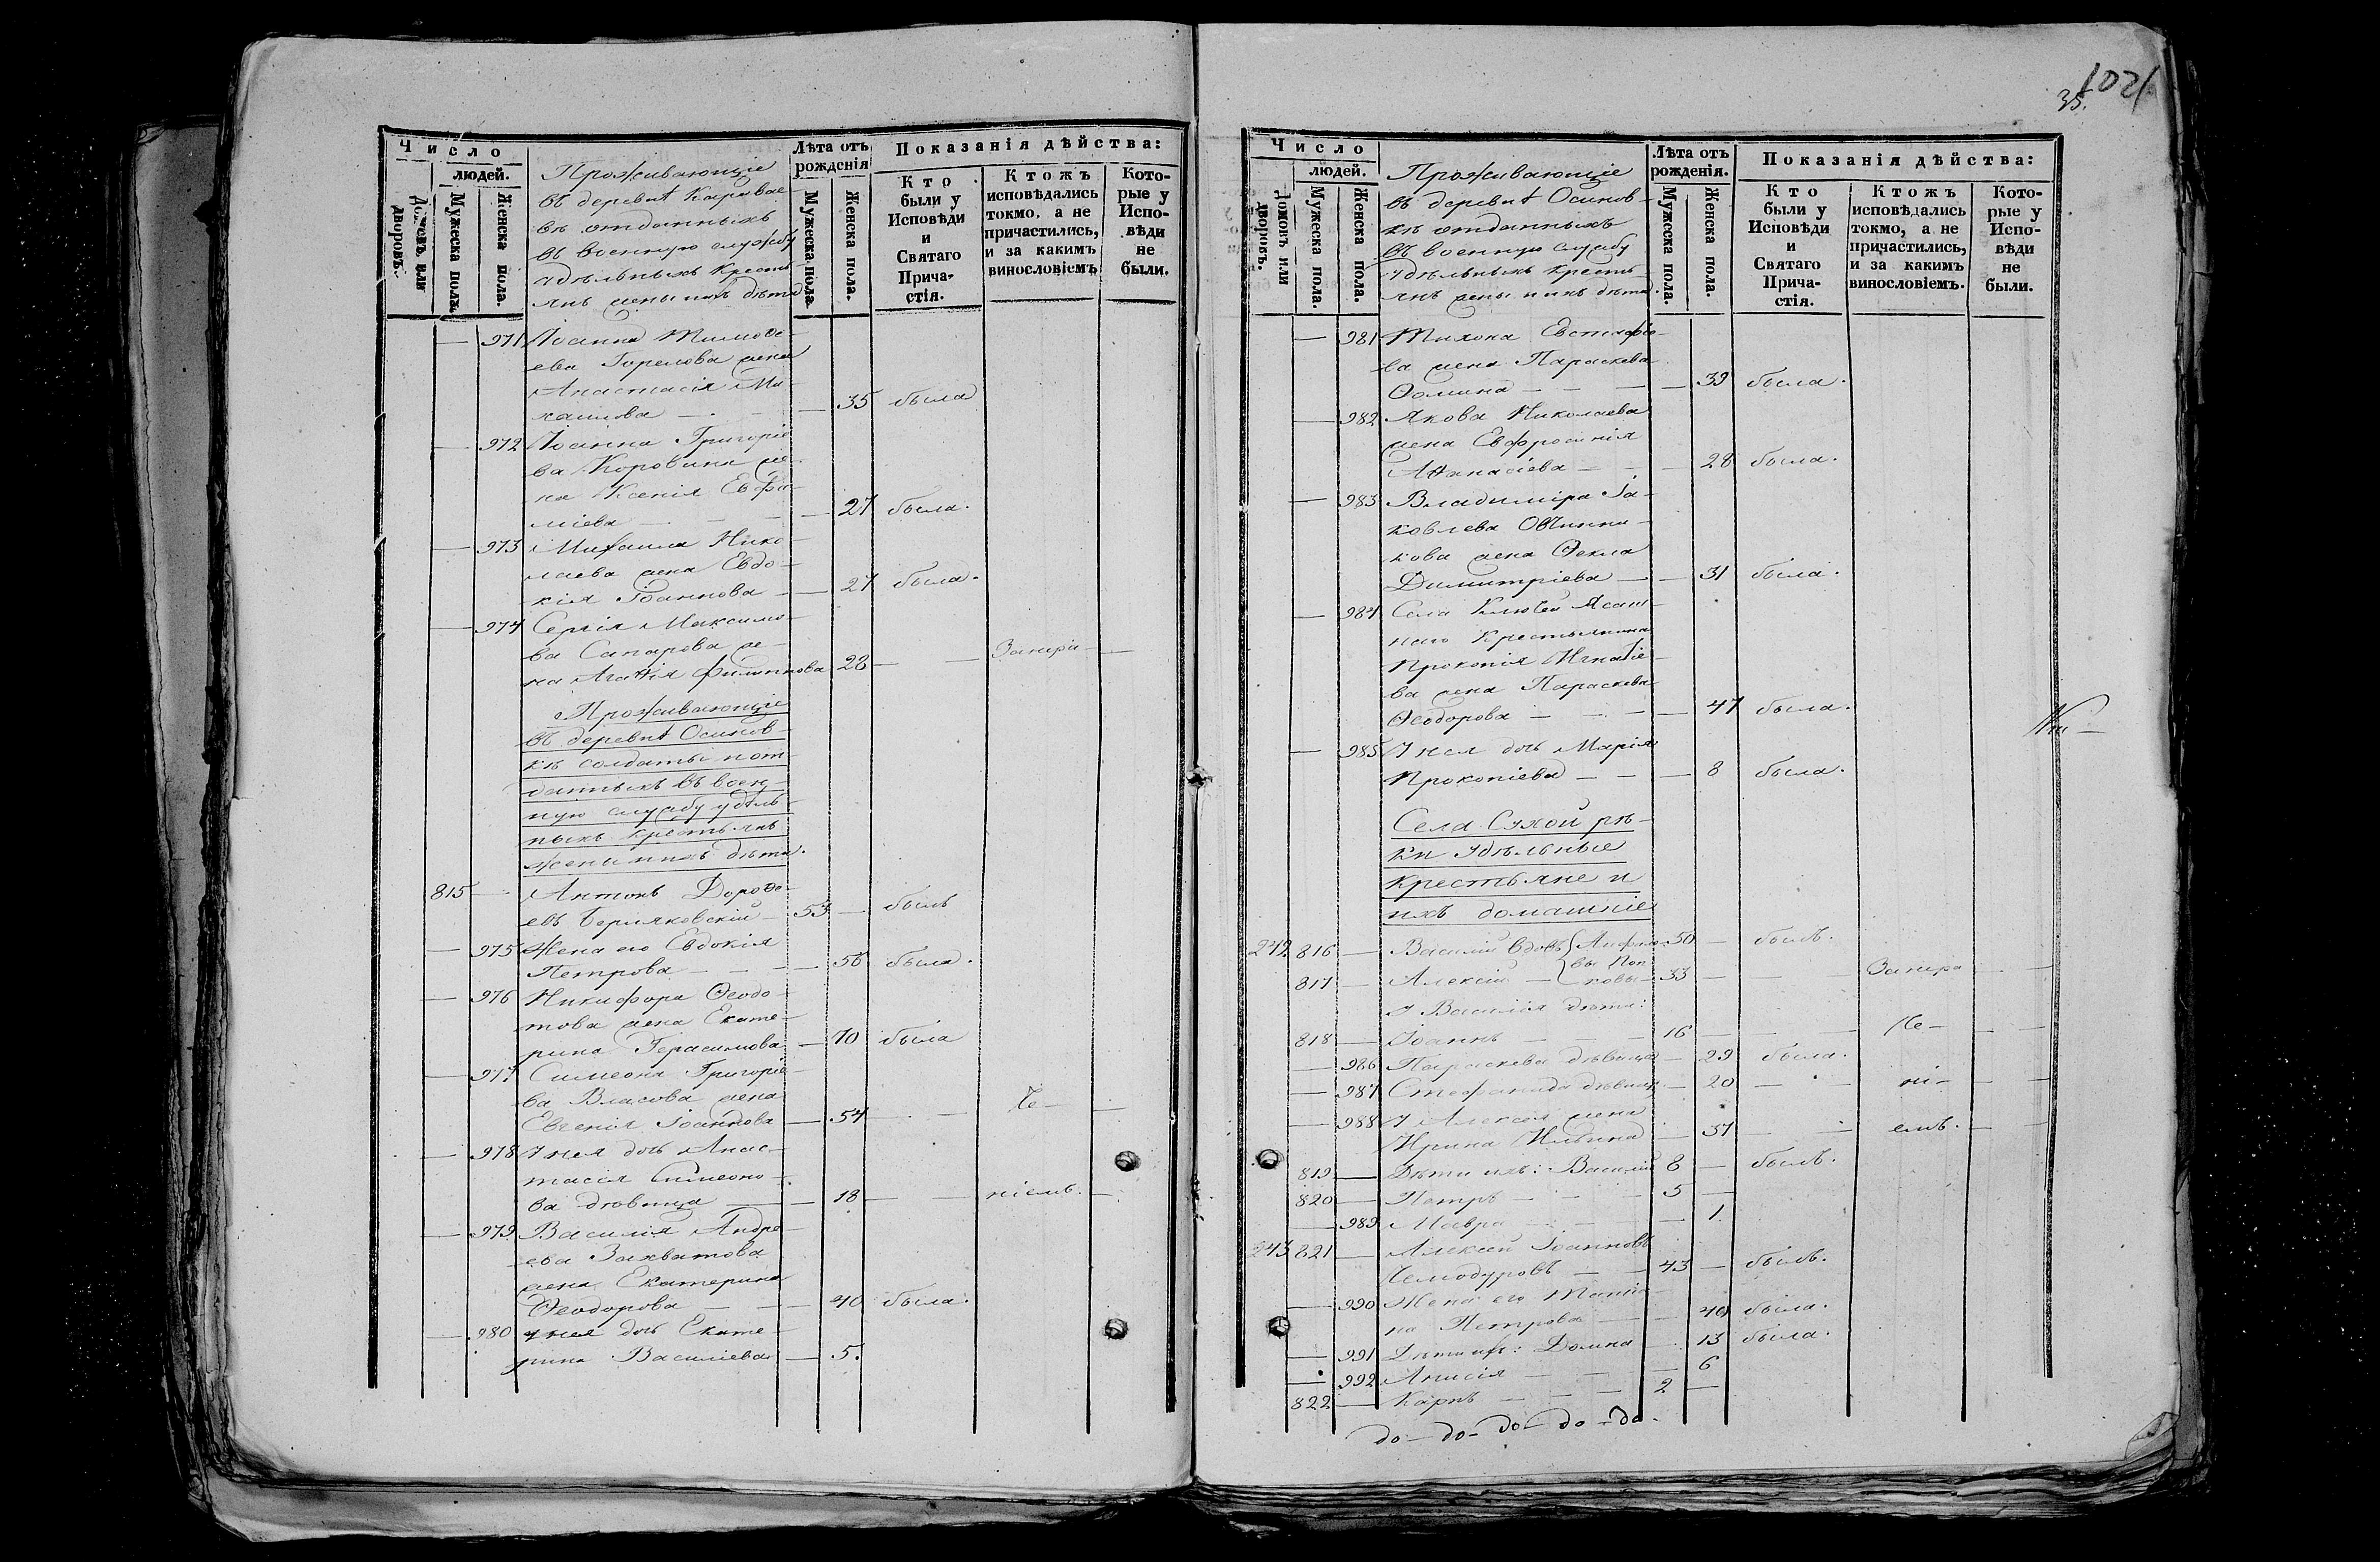 1021
35.
Число
людей.
Домовъ или дворовъ.
Мужеска полх.
Женска пола.
Проживающіе
въ деревнѣ Каравае-
вѣ отданныхъ
въ военную службу
удѣльныхъ кресть-
янъ жены и ихъ дѣти
Лѣта отъ рожденія
Мужеска пола.
Женска пола.
Показанія дѣйства:
Кто были у Исповѣди и Святаго Прича-стія.
Ктожъ исповѣдались токмо, а не причастились, и за какимъ винословіемъ
Кото-рые у Испо-вѣди не были.
— 971 Іоанна Тимоѳе-
ева Горелова жена
Анастасія Ми-
хаилова — — 35 была
— 972 Іоанна Григоріе-
ва Коровина же-
на Ксенія Евфи-
міева — — 27 была.
— 973 Михаила Нико-
лаева жена Евдо-
кія Іоаннова — 27 была.
— 974 Сергія Максимо-
ва Сапарова же-
на Агаѳія Филиппова 28 — — Запра- —
Проживающіе
въ деревнѣ Осинов-
кѣ солдаты и от-
данныхъ въ воен-
ную службу удѣль-
ныхъ крестьянъ
жены и ихъ дѣти.
815 — Антонъ Дороѳе-
евъ Берляковскій — 53 — былъ
— 975 Жена его Евдокія
Петрова — — — 56 была.
— 976 Никифора Ѳеодо-
това жена Екате-
рина Герасимова — 70 была
— 977 Симеона Григоріе-
ва Власова жена
Евгенія Іоаннова — 54 — — Че- —
— 978 У нея дочь Анас-
тасія Симеоно-
ва дѣвица — 18 — — ніемъ. —
— 979 Василія Андре-
ева Захватова
жена Екатерина
Ѳеодорова — — 40 была.
— 980 У нея дочь Екате-
рина Василіева — 5.
Число
людей.
Домовъ или дворовъ.
Мужеска пола.
Женска пола.
Проживающіе
въ деревнѣ Осинов-
кѣ отданныхъ
въ военную службу
удѣльныхъ кресть-
янъ жены и ихъ дѣти.
Лѣта отъ рожденія.
Мужеска пола.
Женска пола.
Показанія дѣйства:
Кто были у Исповѣди и Святаго Прича-стія.
Ктожъ исповѣдались токмо, а не причастились, и за какимъ винословіемъ.
Кото-рые у Испо-вѣди не были.
— 981 Тихона Евстафіе-
ва жена Параскева
Ѳомина — — — 39 была.
— 982 Якова Николаева
жена Евфросинія
Аѳанасіева — — 28 была.
— 983 Владиміра Іа-
ковлева Овчинни-
кова жена Ѳекла
Димитріева — — 31 была.
— 984 Села Ключей Ясаш-
наго крестьянина
Прокопія Игнатіе-
ва жена Параскева
Ѳеодорова — — — 47 была.
— 985 У нея дочь Марія
Прокопіева — — — 8 была.
Села Сухой рѣ-
ки удѣльные
крестьяне и
ихъ домашніе
242 816 — Василій вдовъ 50 — былъ.
817 — Алексій — 33 — — Запра — —
У Василія дѣти:
818 — Іоаннъ — — — 16 — — Че- — —
— 986 Параскева дѣвица — 29 была.
— 987 Стефанида дѣвица — 20 — — ні- — —
— 988 У Алексія жена
Ирина Ильина — 37 — — емъ. — —
819 — Дѣти ихъ: Василій 8 — былъ.
820 — Петръ — — — 5 —
— 989 Мавра — — — 1.
243 821 — Алексій Іоанновъ
Чемодуровъ — — 43 — былъ.
— 990 Жена его Татіа-
на Петрова — — 40 была.
— 991 Дѣти ихъ: Домна — 13 была.
— 992 Анисія — — — 6
822 — Карпъ — — — 2 —
до — до — до — до — до.